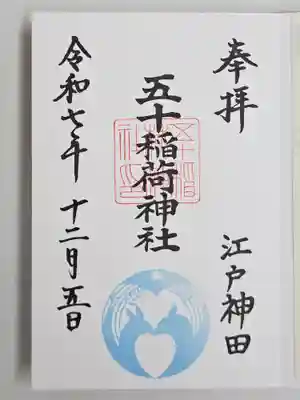 奉拝
江戸神田
五十稲荷神社
令和七年 十二月五日